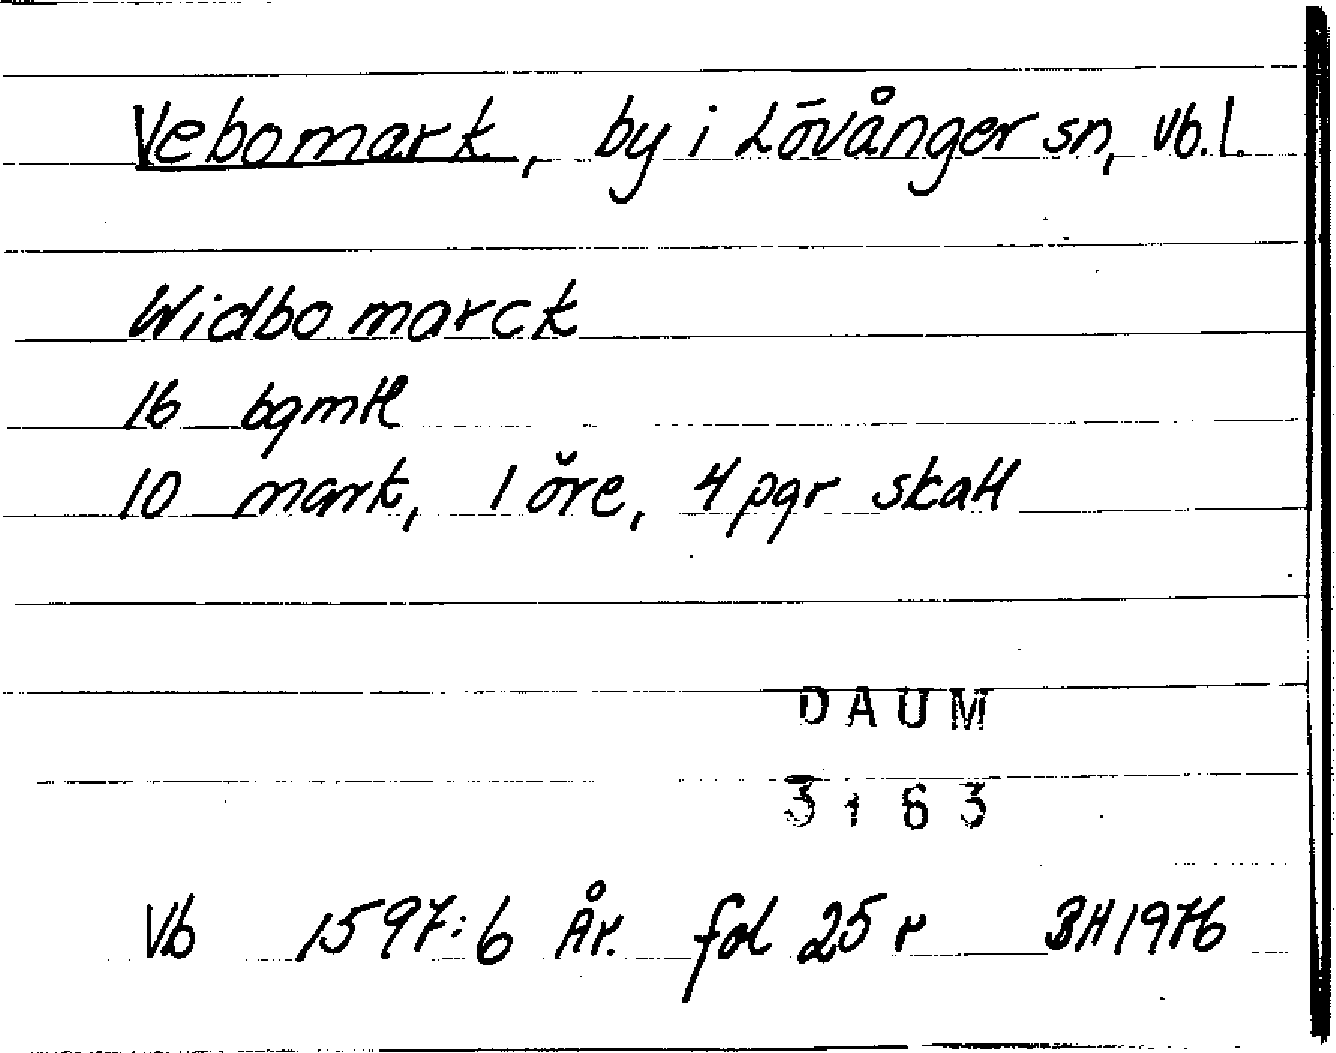 Vebomark, by i Lövånger sn, Vb.l.
Widbomarck
16 bgmtl
10 mark, 1 öre, 4 pgr skatt
DAUM
3163
Vb 1597:6 År. fol 25 r BH 1976